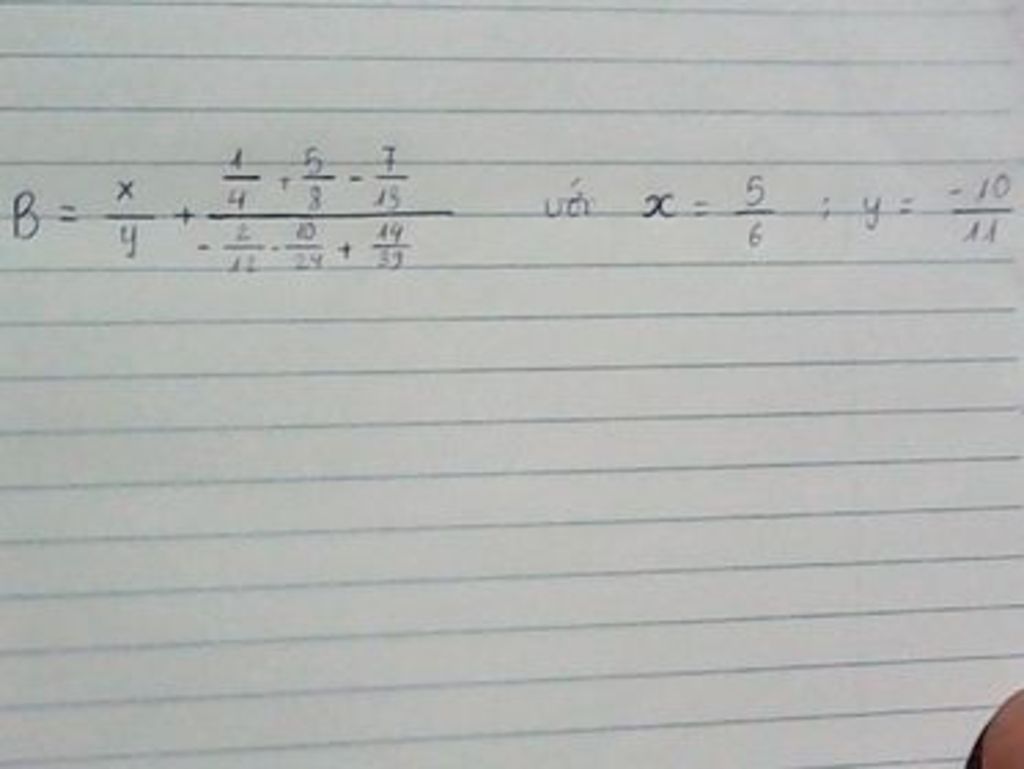 B = x/y + (1/4 + 5/8 - 7/13)/(-2/12 - 10/24 + 14/39) với x = 5/6 ; y = -10/11